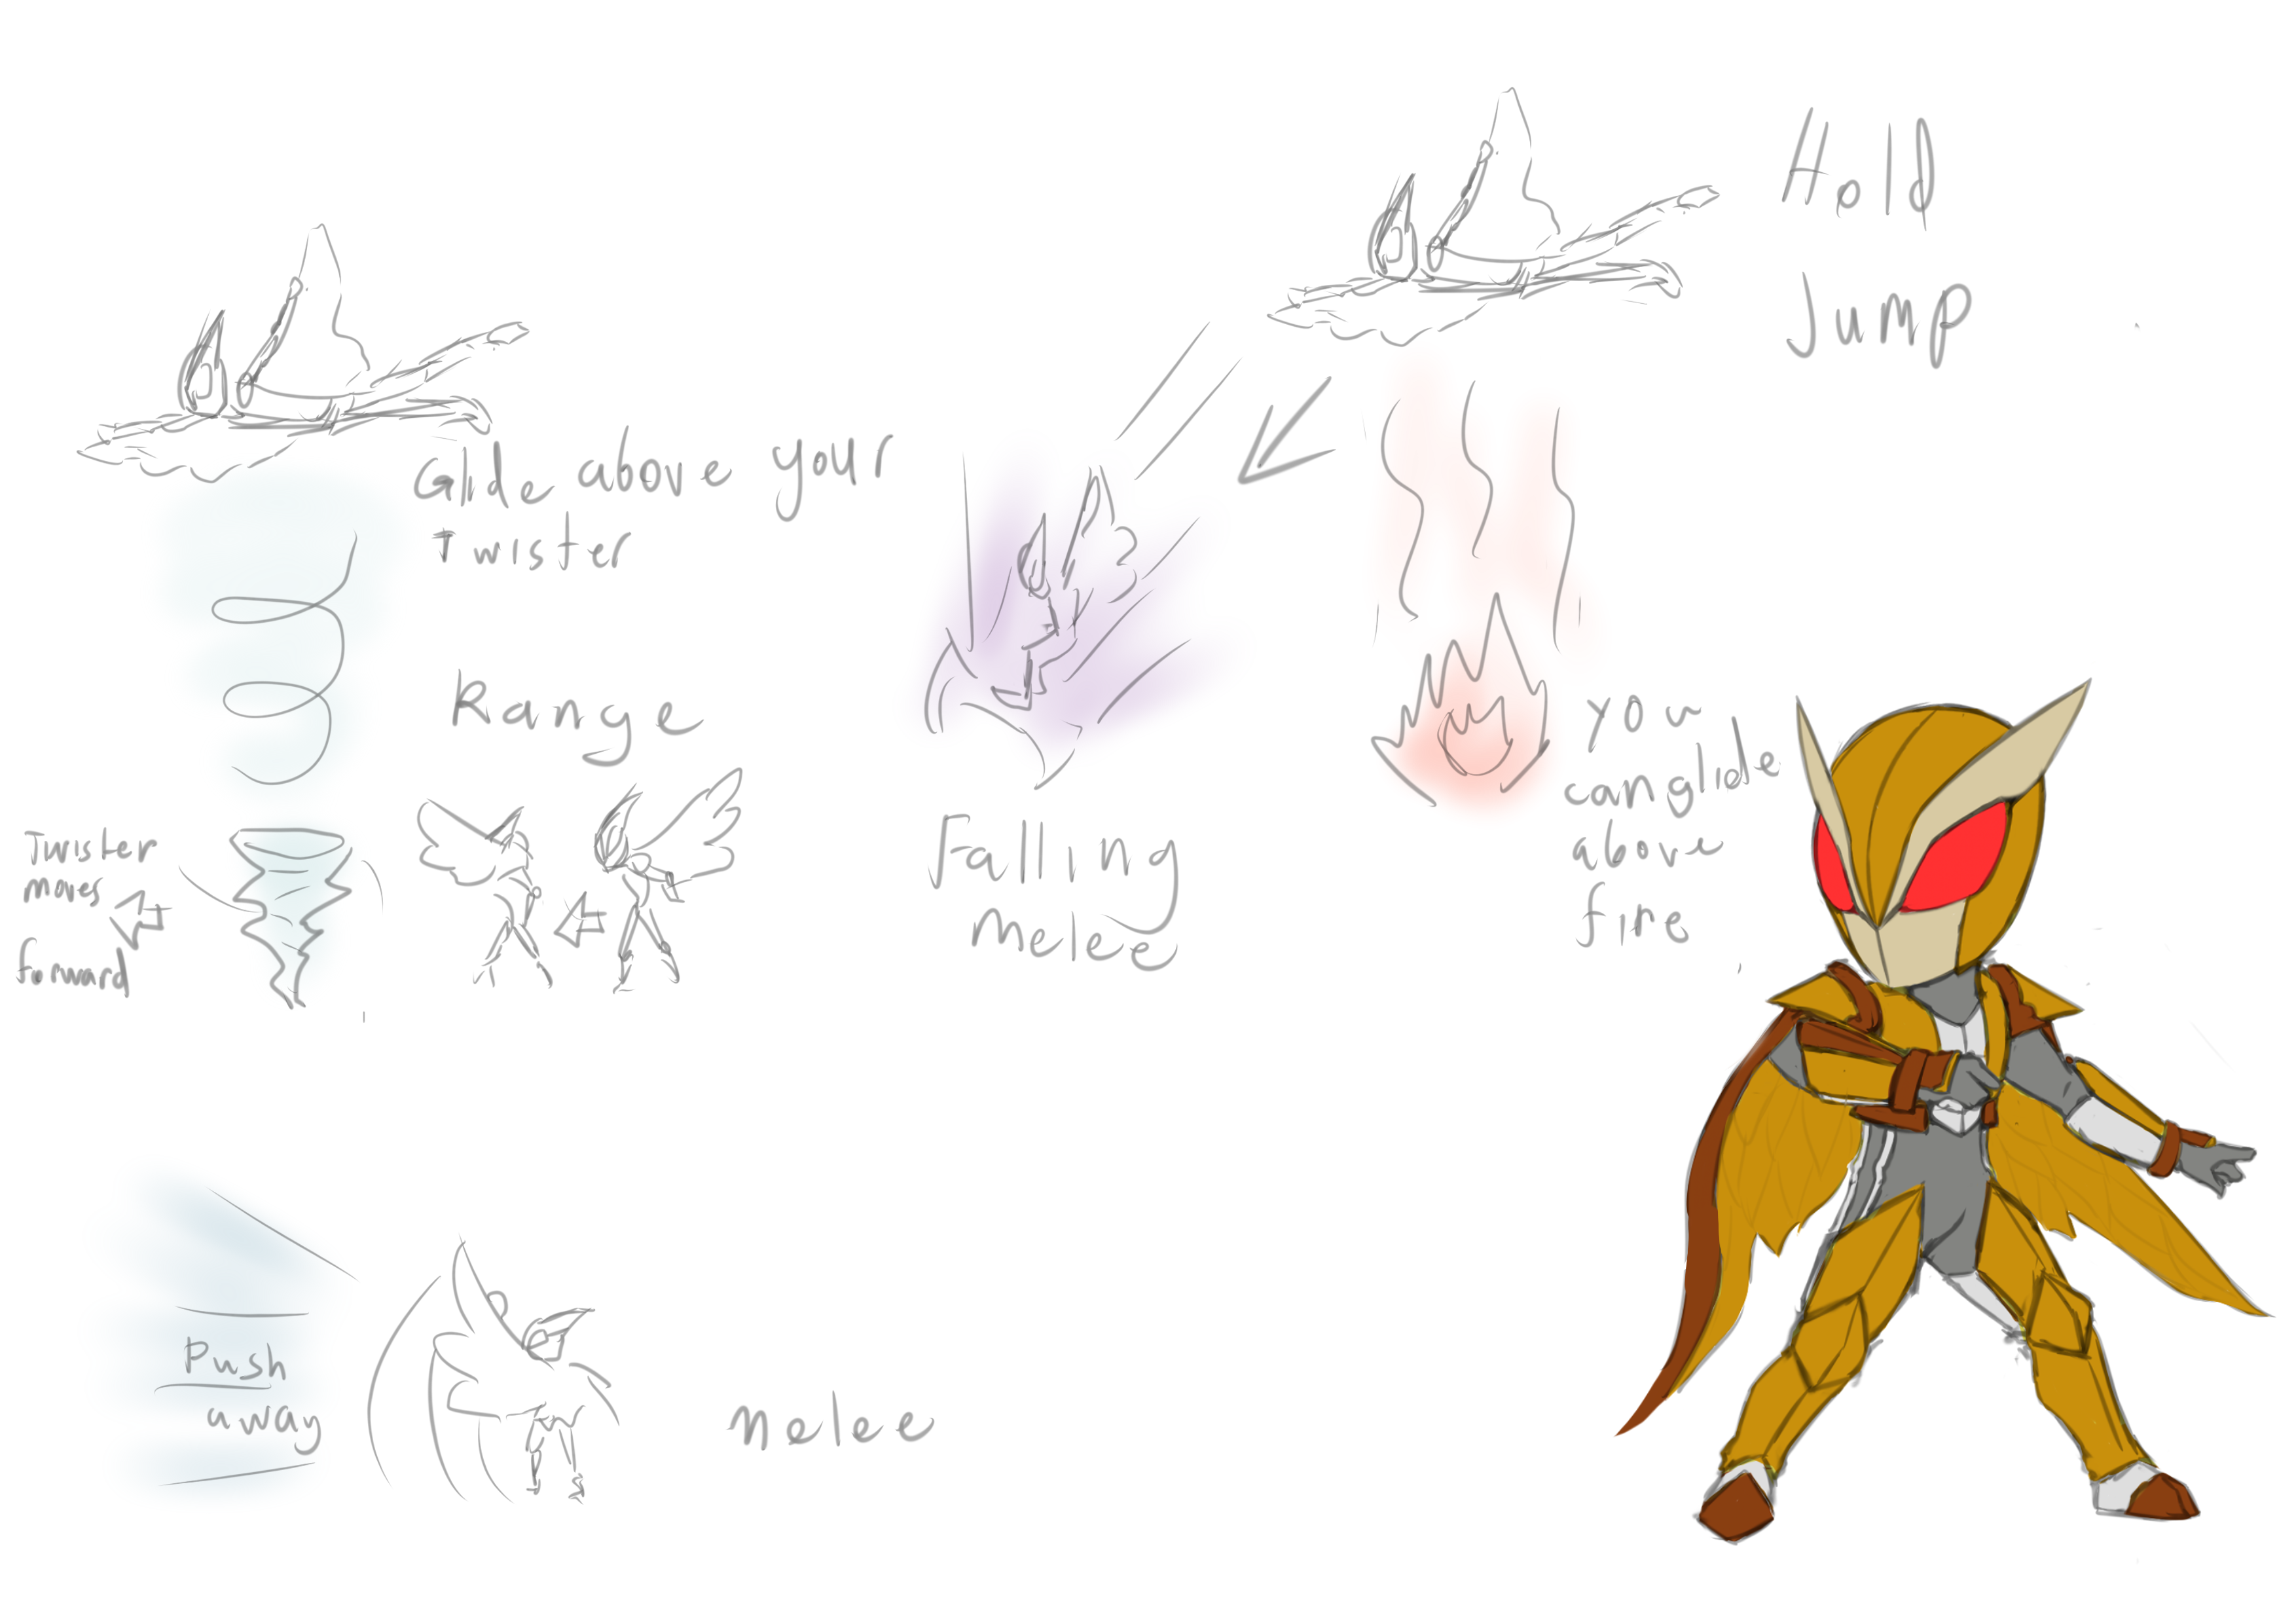 Hold
Jump
Glide above your
Twister
Range
Twister
moves
forward
Falling
Melee
you
can glide
above
fire
Push
away
Melee